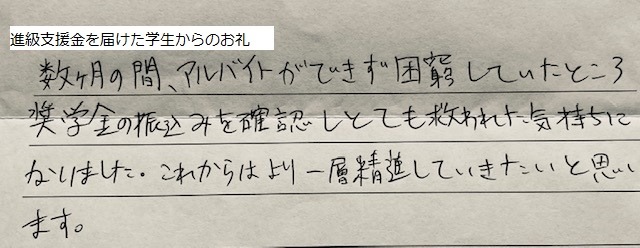 進級支援金を届けた学生からのお礼
数ヶ月の間、アルバイトができず困窮していたところ
奨学金の振込みを確認しとても救われた気持ちに
なりました。これからはより一層精進していきたいと思い
ます。